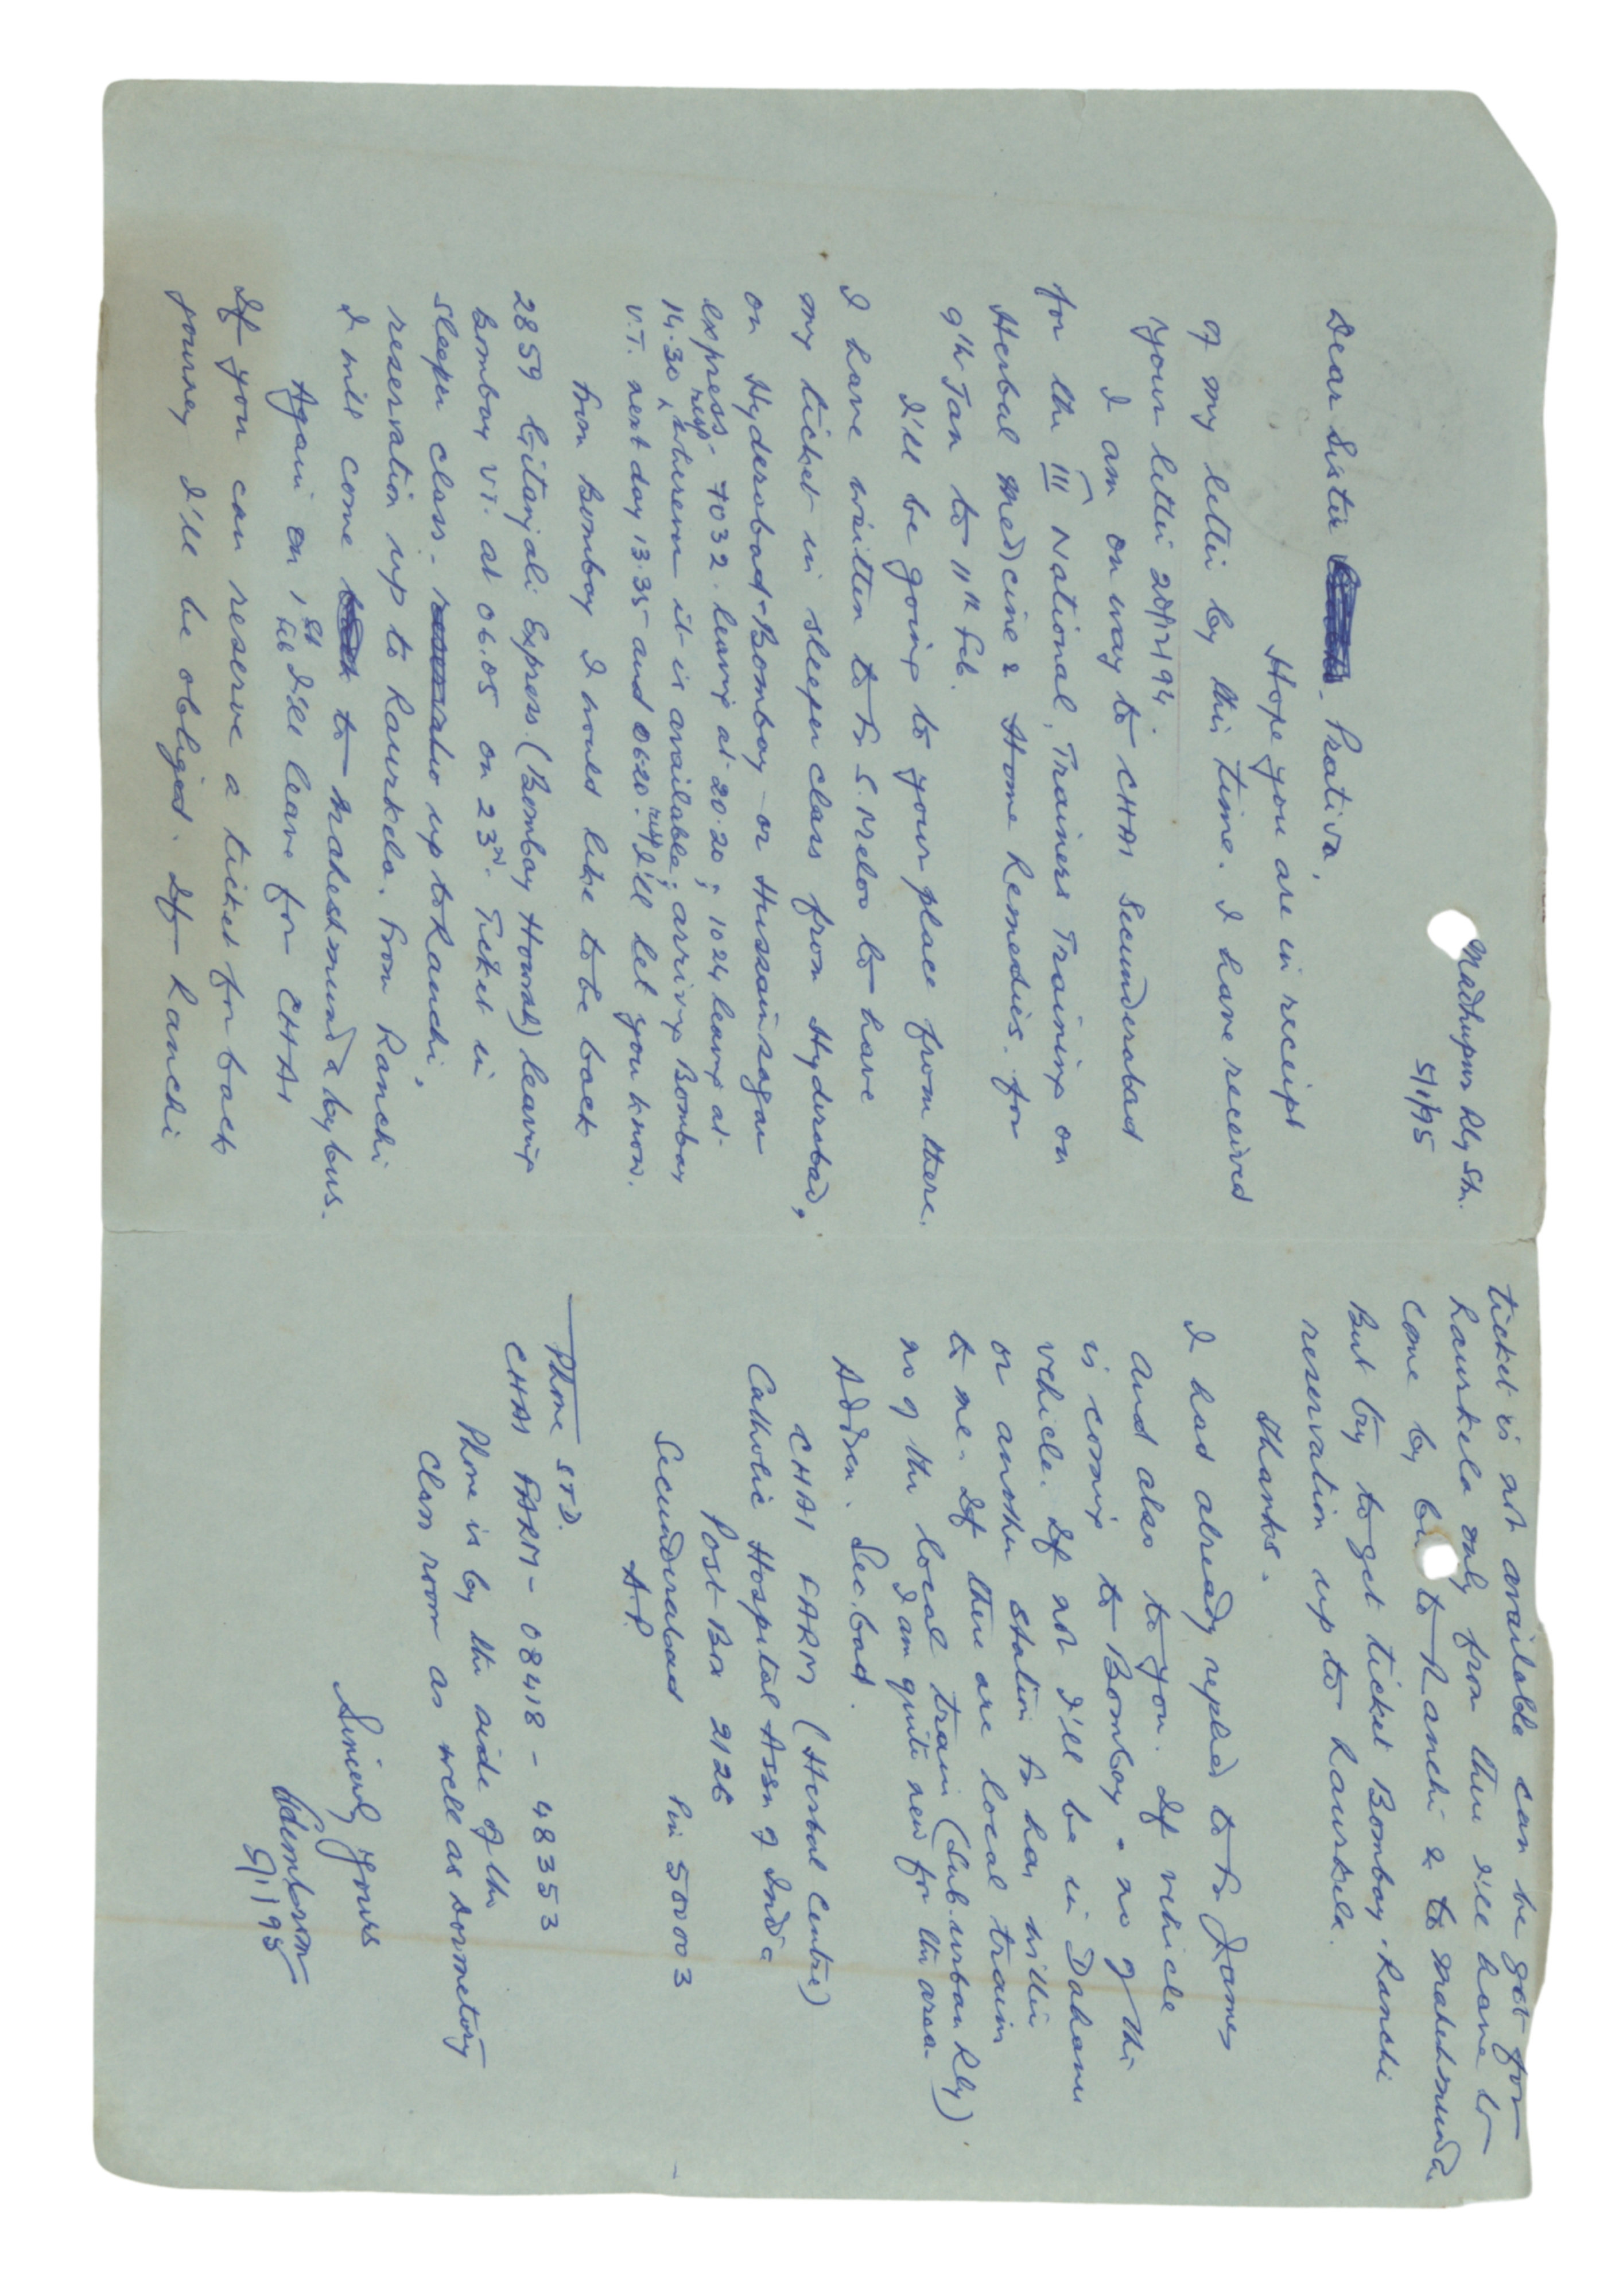 Madhupur Rly Stn.
5/1/95
Dear Sister Prativa,
Hope you are in receipt
of my letter by this time. I have received
your letter 28/12/94.
I am on way to CHAI Secunderabad
for the III National, Trainers Training on
Herbal Medicine & Home Remedies. for
9th Jan to 11th Feb.
I'll be going to your place from there.
I have written to Fr S. Meloo to have
my ticket in sleeper class from Hyderabad,
on Hyderabad-Bombay or Hussainsagar
express - 7032 leaving at 20.20; 1024 leaving at
14.30 resp., wherever it is available; arriving Bombay
V.T. next day 13.35 and 0620 resp. I'll let you know.
From Bombay I would like to be back
2859 Gitanjali Express (Bombay Howrah) leaving
Bombay VT. at 06.05 on 23rd. Ticket in
sleeper class - up to Ranchi,
reservation up to Rourkela. From Ranchi
I will come to Mahesmunda by bus.
Again on 1st Feb I'll leave for CHAI
If you can reserve a ticket for back
journey I'll be obliged. If Ranchi
ticket is not available can be got for
Rourkela only from there I'll have to
come by to Ranchi & to Maheshmunda.
But try to get ticket Bombay-Ranchi
reservation up to Rourkela.
Thanks.
I had already replied to Fr James
and also to you. If vehicle
is coming to Bombay - no of the
vehicle. If not I'll be in Dahanu
or another station Fr has written
to me. If there are local trains
no of the local train (Sub. urban Rly)
I am quite new for the area.
Address. Sec.bad.
CHAI FARM (Herbal Centre)
Catholic Hospital Assn of India
Post Box 2126
Secunderabad Pin 500003
A.P.
Phone STD.
CHAI FARM - 08418 - 48353
Phone is by the side of the
Class room as well as dormetory
Sincerely yours
5/1/95